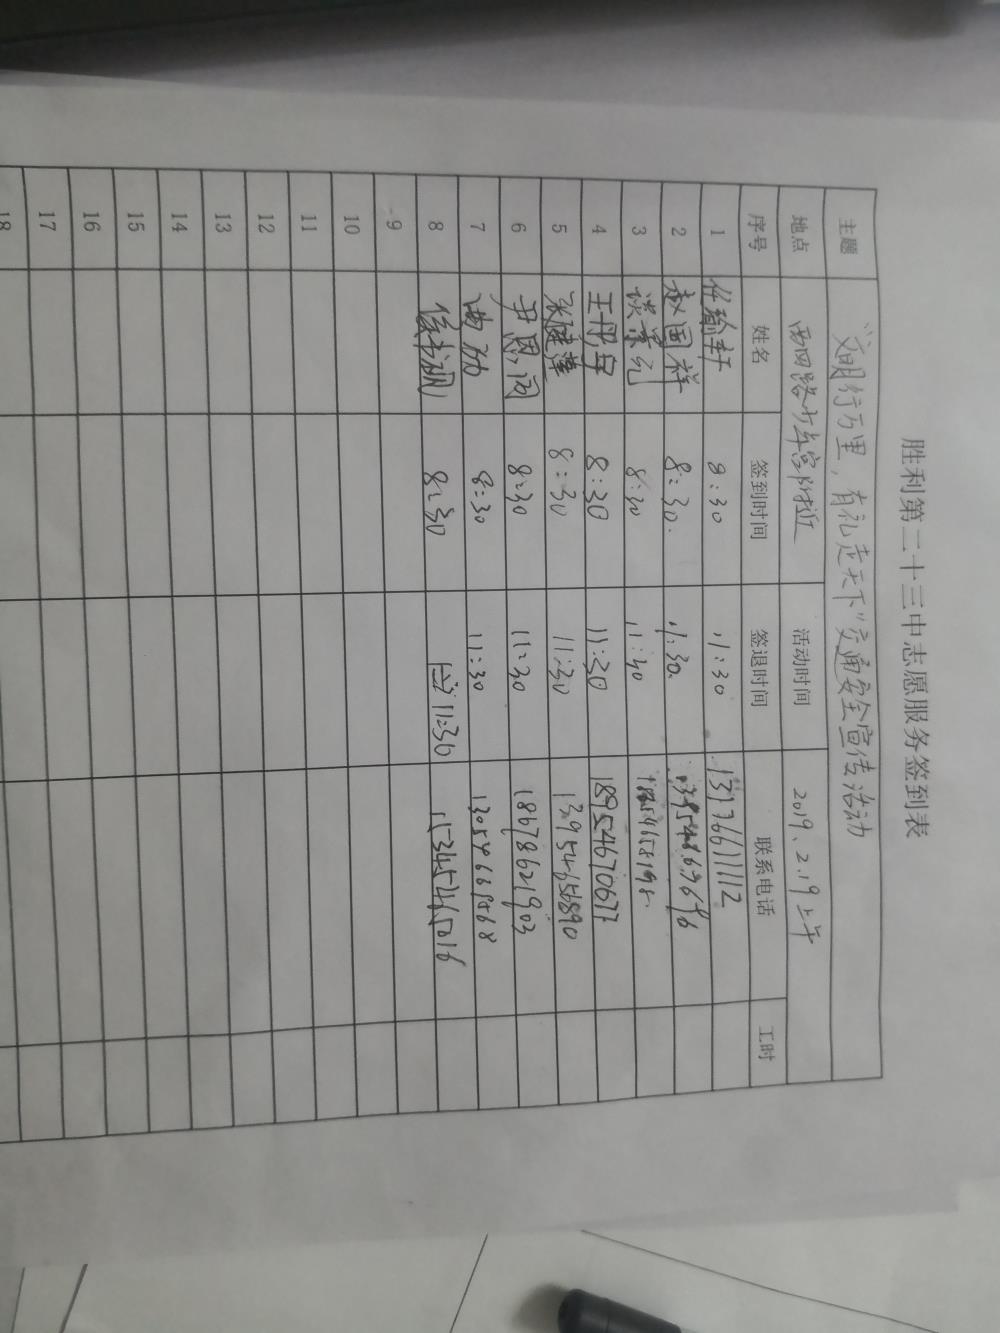 胜利第二十三中志愿服务签到表
主题 "文明行万里，有礼走天下"交通安全宣传活动
地点 西四路少年宫附近 活动时间 2019、2.19上午
序号 姓名 签到时间 签退时间 联系电话 工时
1 任瑜轩 8:30 11:30 13376611112
2 赵国祥 8:30. 11:30.
3 谈景元 8:30 11:30
4 王丹宇 8:30 11:30 18954670677
5 8:30 11:30 13954656890
6 尹思闵 8:30 11:30 18678621903
7 曲 8:30 11:30
8 8:30 11:30
9
10
11
12
13
14
15
16
17
18